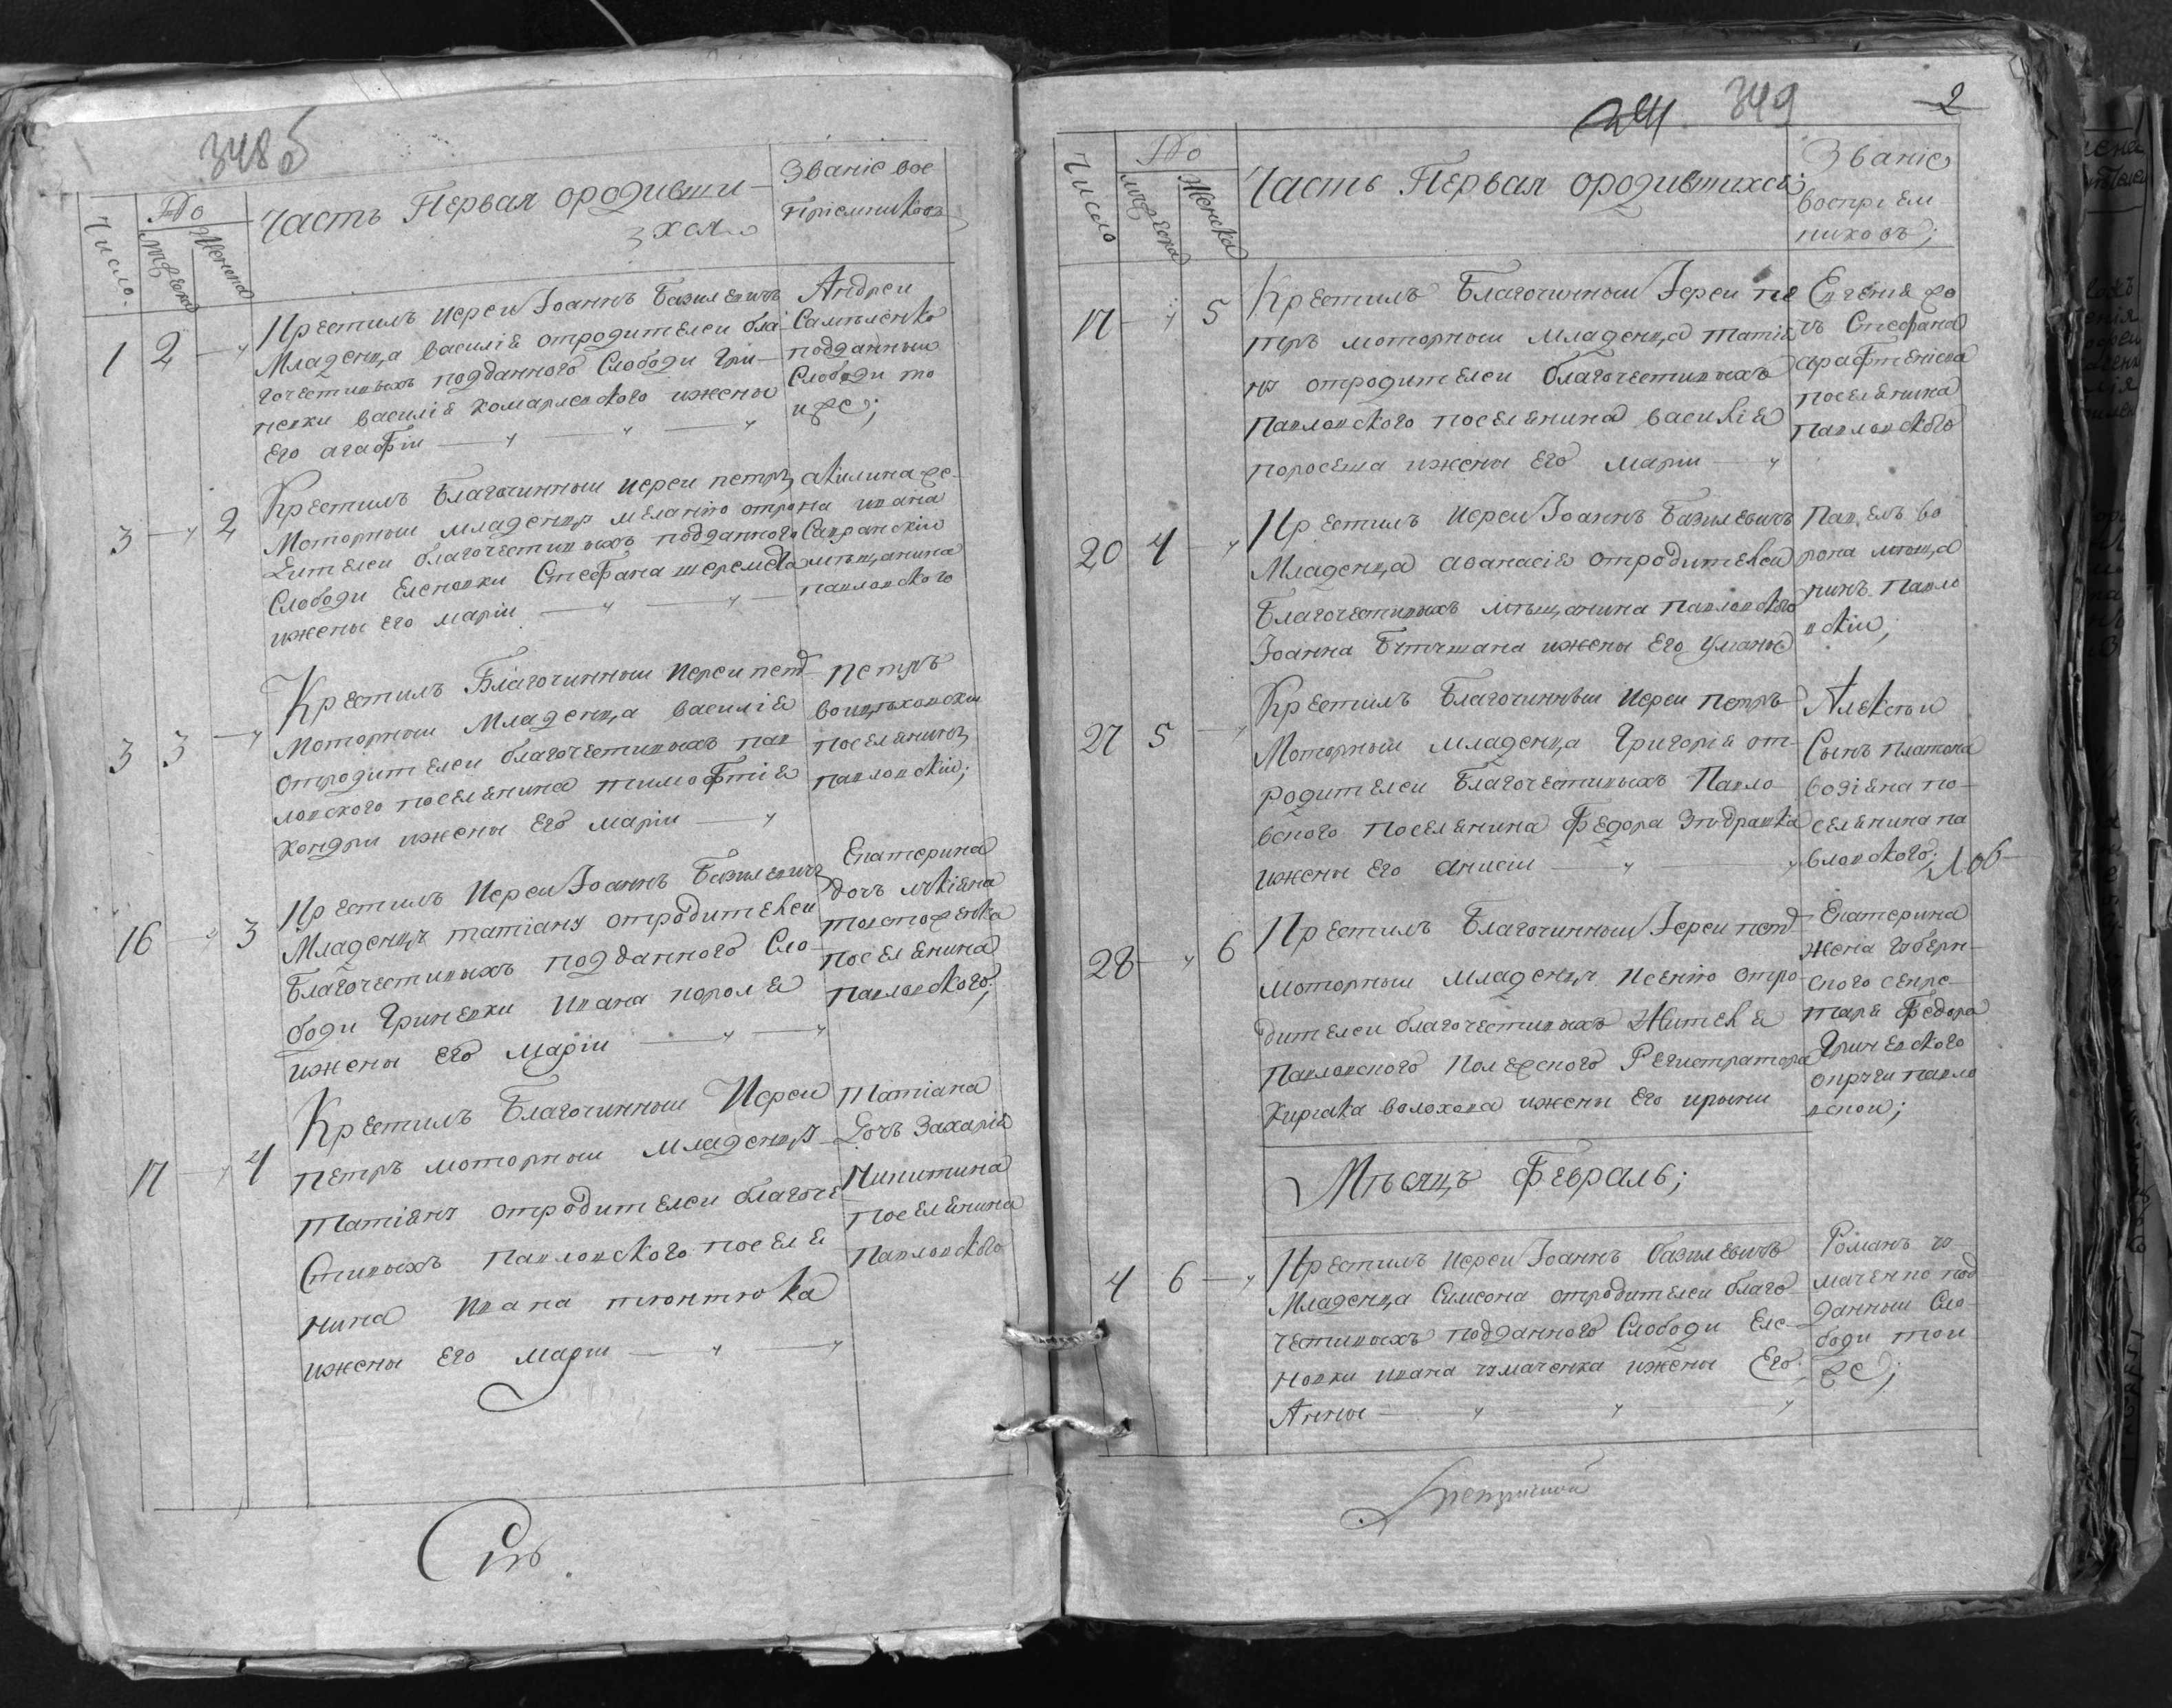 348 об
Число.
До
Мужеска
Женска
Часть Первая ородивши-
хся
Званіе вос
пріемниковъ
1 2 — „
Крестилъ иереи Іоаннъ Базилевичъ
Младенца василія отродителеи бла
гочестивыхъ подданного Слободи Гри-
невки василія комарлевского ижены
Его агафіи — „ — „ — „
Андреи
подданныи
Слободи то
иже;
3 — „ 2
Крестилъ Благочинныи иереи петръ
Моторныи младенца меланію отро
дителеи благочестивыхъ подданного
Слободи Еленовки Стефана шеремета
ижены его маріи — „ — „
акилина же-
на ивана
мѣщанина
павловского
3 3 — „
Крестилъ Благочинныи иереи петр
Моторныи Младенца василія
отродителеи благочестивыхъ пав
ловского поселянина тимофтія
кондри ижены Его маріи — „
петръ
воицѣховскіи
поселянинъ
павловскіи;
16 — „ 3
Крестилъ Иереи Іоаннъ Базилевичъ
Младенцу татіану отродителеи
Благочестивыхъ подданного Сло-
боди Гриневки Ивана пороля
ижены Его Маріи — „ — „
Екатерина
дочъ лукіяна
толстоженка
поселянина
павловского;
17 — „ 4
Крестилъ Благочинныи Иереи
петръ моторныи младенцу
татіяну отродителеи благоче
Стивыхъ павловского поселя
нина Ивана тюнтюка
ижены Его Маріи — „ — „
татіана
Дочъ Захарія
Никитина
поселянина
павловского
349
2
Число
До
мужеска
Женска
Часть Первая ородившихся;
Званіе
воспріем
никовъ;
17 — „ 5
Крестилъ Благочинныи Іереи пе
тръ моторныи младенца татія
ну отродителеи благочестивыхъ
павловского поселянина василія
поросеша ижены Его марии — „
Евгенія до
чъ Стефана
поселянина
павловского
20 4 — „
Крестилъ иереи Іоаннъ Базилевичъ
Младенца аѳанасія отродителеи
Благочестивыхъ мѣщанина павловского
Іоанна ижены Его уляны
Павелъ во
рона мѣща
нинъ павло
вскіи;
27 5 — „
Крестилъ Благочинныи иереи петръ
Моторныи младенца Григорія от-
родителеи Благочестивыхъ Павло-
вского поселянина Федора
ижены Его анисіи — „ — „
Алексѣи
Сынъ платона
водіяна по-
селянина па
вловского;
28 — „ 6
Крестилъ Благочинныи Іереи петр
моторныи младенцу ксенію отро-
дителеи благочестивыхъ Жителя
павловского Колежского Регистратора
кириака волохова ижены Его ирыни
Екатерина
жена губерн-
ского секре-
таря Федора
Гриневского
павло
вскои;
Мѣсяцъ Февраль;
4 6 — „
Крестилъ иереи Іоаннъ базилевичъ
Младенца Симеона отродителеи благо-
честивыхъ подданного Слободи Еле-
новки ивана чумаченка ижены Его
Анны — „ — „ — „
Романъ чу
маченко под
данныи Сло-
боди тои
же;